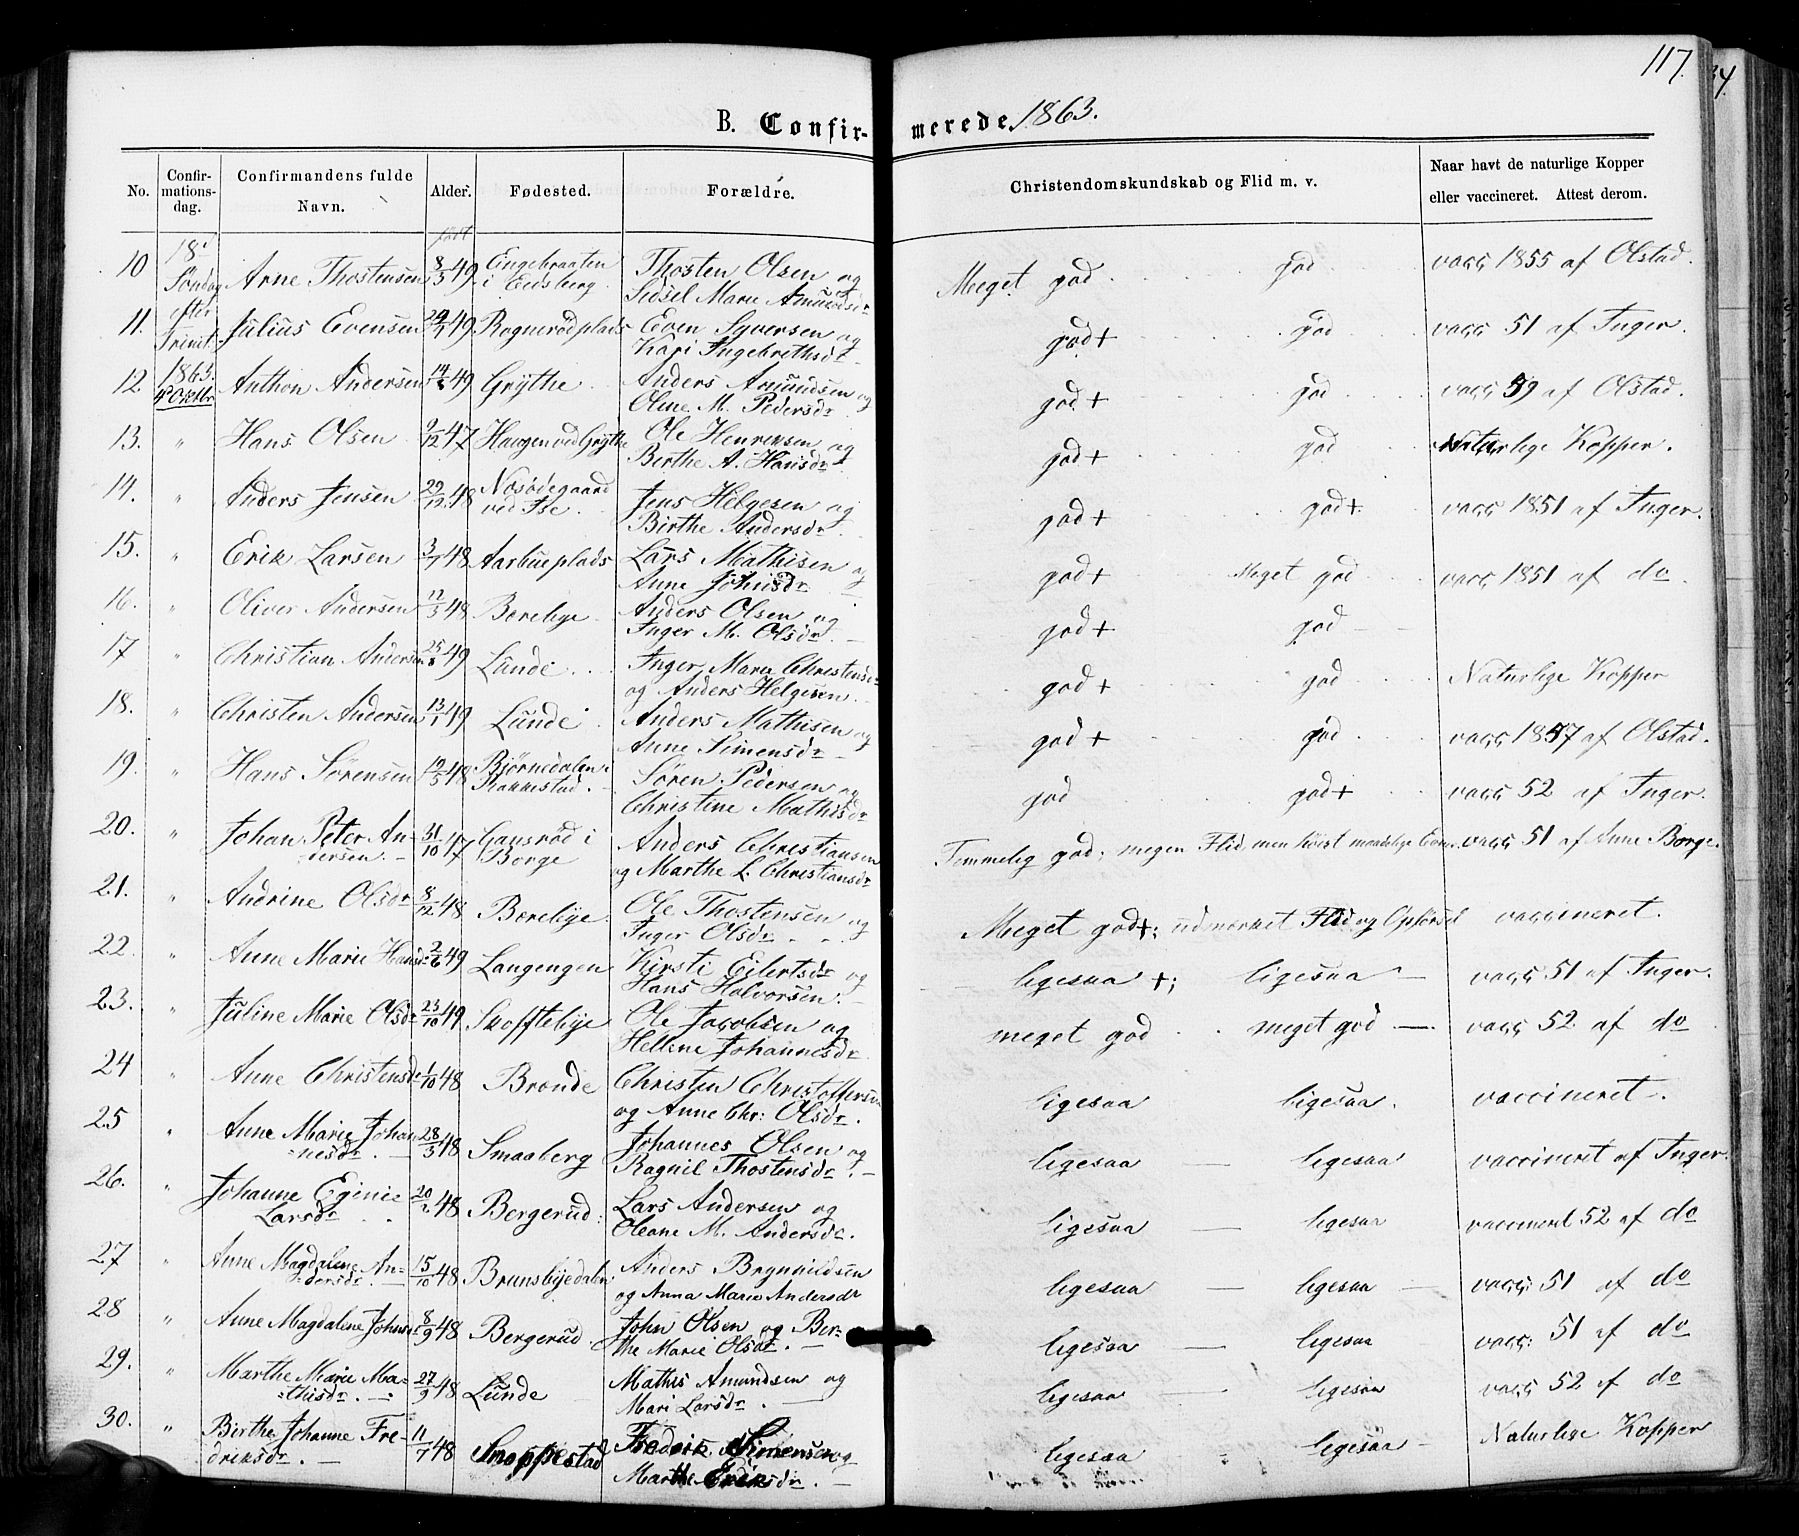 117.
B. Confir-merede 1863.
No. Confir-mations-dag. Confirmandens fulde Navn. Alder. Fødested. Forældre. Christendomskundskab og Flid m. v. Naar havt de naturlige Kopper eller vaccineret. Attest derom.
18d Søndag efter Trinit. 1863. 4 Oktbr
10 Arne Thostensen 8/3 49 Engebraaten i Eidsberg. Thosten Olsen og Sidsel Marie Amundsdr Meget god god vacc 1855 af Olstad.
11. Julius Evensen 49 Rognerødplads Even Syversen og Kari Ingebrethsdr god+ god vacc 51 af Inger.
12. Anthon Andersen 49 Grythe Anders Amundsen og Oline M. Pedersdr god+ god vacc 59 af Olstad.
13. " Hans Olsen 9/12 47 Haugen ved Grythe Ole Henriksen og Birthe A. Hansdr god+ god Naturlige Kopper.
14. " Anders Jensen 29/12 48 Nosødegaard ved Ise. Jens Helgesen og Birthe Andersdr god+ god+ vacc 1851 af Inger.
15. " Erik Larsen 3/7 48 Aarbueplads Lars Mathisen og Anne Johnsdr god+ Meget god vacc 1851 af do.
16. " Oliver Andersen 17/5 48 Borebye Anders Olsen og Inger M. Olsdr god+ god
17 " Christian Andersen 49 Lunde Inger Marie Christensdr og Anders Helgesen. god+ god Naturlige Kopper
18. " Christen Andersen 13/1 49 Lunde Anders Mathisen og Anne Simensdr god+ god vacc 1857 af Olstad.
19. " Hans Sørensen 19/5 48 Bjørnedalen i Rakkestad. Søren Pedersen og Christine Mathisdr god god+ vacc 52 af Inger.
20. " Johan Peter Andersen. 31/10 47 Gansrød i Borge Anders Christiansen og Marthe L. Christiansdr Temmelig god; megen Flid, men høist maadelige Evner vacc 51 af Anne Borge.
21. " Andrine Olsdr 8/12 48 Borebye. Ole Thostensen og Inger Olsdr. Meget god+; udmærket Flid og Opførsel vaccineret.
22. " Anne Marie Hansdr 2/6 49 Langengen Kirsti Eilertsdr og Hans Halvorsen. ligesaa +; ligesaa vacc 51 af Inger.
23. " Juline Marie Olsdr 23/10 49 Skoftebye Ole Jacobsen og Hellene Johannesdr meget god meget god vacc 52 af do
24 " Anne Christensdr 1/10 48 Brønde Christen Christoffersen og Anne Chr: Olsdr. ligesaa ligesaa. vaccineret.
25 " Anne Marie Johannesdr. 28/3 48 Smaaberg Johannes Olsen og Ragnil Thostensdr. ligesaa ligesaa vaccineret af Inger.
26. " Johanne Eginie Larsdr 48 Bergerud Lars Andersen og Oleane M. Andersdr. ligesaa ligesaa vaccineret 52 af do
27 " Anne Magdalene Andersdr. 15/10 48 Brunsbyedalen Anders Brynnildsen og Anna Marie Andersdr ligesaa ligesaa vacc: 51 af do
28 " Anne Magdalene Johnsdr 8/9 48 Bergerud. John Olsen og Berthe Marie Olsdr. ligesaa ligesaa vacc: 51 af do
29. " Marthe Marie Mathisdr. 27/9 48 Lunde Mathis Amundsen og Mari Larsdr. ligesaa ligesaa vacc: 52 af do
30. " Birthe Johanne Fredriksdr. 11/7 48 Snoppestad Fredrik Simensen og Marthe Eriksdr. ligesaa ligesaa Naturlige Kopper